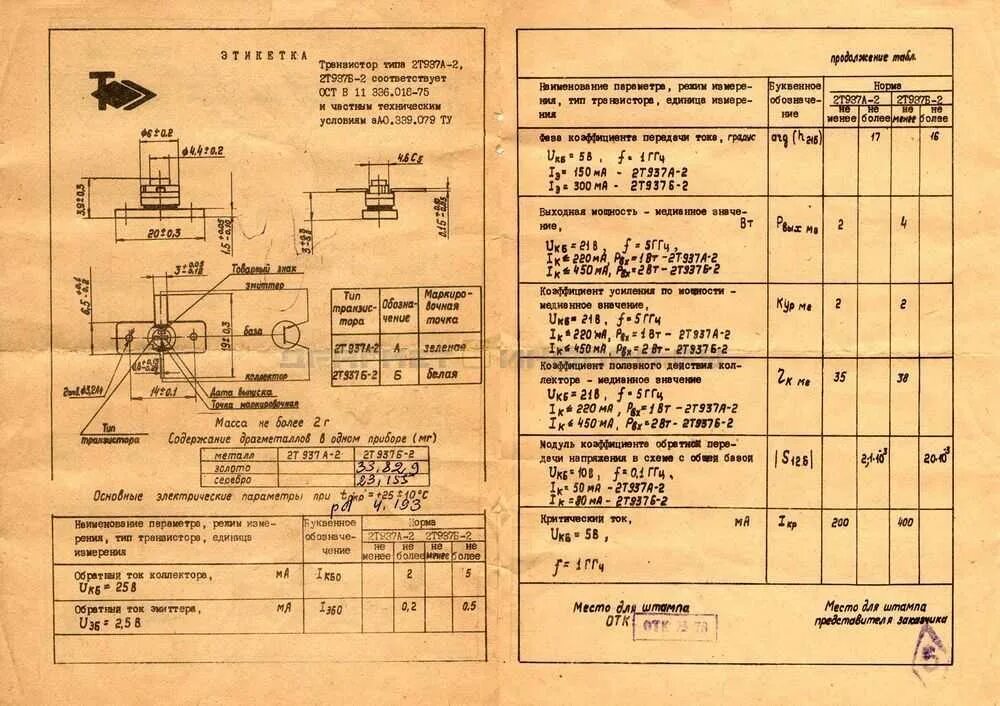 ЭТИКЕТКА
Транзистор типа 2Т937А-2,
2Т937Б-2 соответствует
ОСТ В 11 336.018-75
и частным техническим
условиям аА0.339.079 ТУ
ø6±0.2
ø4,4±0.2
3,9±0,3
20±0,3
4.6 С5
3±0.05
Товарный знак
эмиттер
база
коллектор
19±0,3
14±0.1
Дата выпуска
Точка маркировочная
Тип
транзистора
Тип транзис-тора Обозна-чение Маркиро-вочная точка
2Т937А-2 А зеленая
2Т937Б-2 Б белая
Масса не более 2 г
Содержание драгметаллов в одном приборе (мг)
металл 2Т 937 А-2 2Т 937Б-2
золото 33,829
серебро 23,155
Основные электрические параметры при tокр=+25±10°С
Наименование параметра, режим изме-
рения, тип транзистора, единица
измерения
Буквенное
обозначе-
чение
Норма
2Т937А-2 2Т937Б-2
не менее не более не менее не более
Обратный ток коллектора, мА IКБО 2 5
UКБ = 25В
Обратный ток эмиттера, мА IЭБО 0,2 0.5
UЭБ = 2,5 В
продолжение табл.
Наименование параметра, режим измере-
ния, тип транзистора, единица измере-
ния
Буквенное
обозначе-
ние
Норма
2Т937А-2 2Т937Б-2
не менее не более не менее не более
Фаза коэффициента передачи тока, градус arg (h21б) 17 16
UКБ = 5В, f = 1ГГц
IЭ = 150 мА - 2Т937А-2
IЭ = 300 мА - 2Т937Б-2
Выходная мощность - медианное значе-
ние, Вт Рвых ме 2 4
UКБ = 21В, f = 5ГГц,
IК ≤ 220мА, Рвх = 1Вт - 2Т937А-2
IК ≤ 450 мА, Рвх = 2Вт - 2Т937Б-2
Коэффициент усиления по мощности -
медианное значение, Кур ме 2 2
UКБ = 21В, f = 5ГГц
IК ≤ 220 мА, Рвх = 1Вт - 2Т937А-2
IК ≤ 450 мА, Рвх = 2Вт - 2Т937Б-2
Коэффициент полезного действия кол-
лектора - медианное значение ηК ме 35 38
UКБ = 21В, f = 5ГГц
IК ≤ 220 мА, Рвх = 1Вт - 2Т937А-2
IК ≤ 450 мА, Рвх = 2Вт - 2Т937Б-2
Модуль коэффициента обратной пере-
дачи напряжения в схеме с общей базой |S12Б| 2,1·10⁻³ 20·10⁻³
UКБ = 10В, f = 0,1ГГц,
IК = 50 мА - 2Т937А-2
IК = 80 мА - 2Т937Б-2
Критический ток, мА Iкр 200 400
UКБ = 5В,
f = 1ГГц
Место для штампа
ОТК
Место для штампа
представителя заказчика